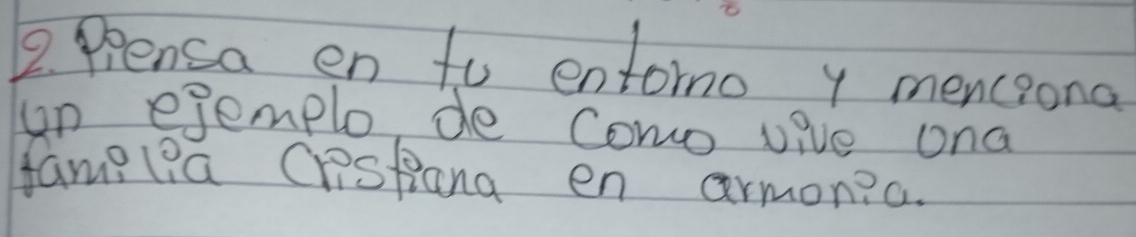 2. Piensa en tu entorno y menciona
un ejemplo de como vive una
familia Cristiana en armonia.